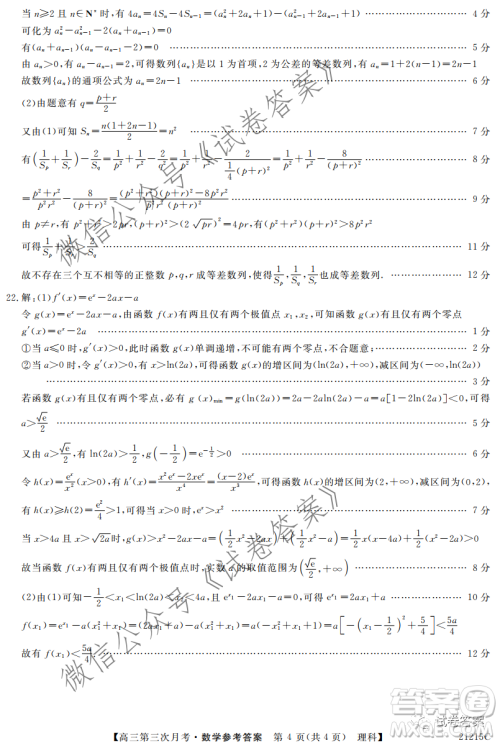 当 n≥2 且 n∈N* 时,有 4aₙ=4Sₙ-4Sₙ₋₁=(aₙ²+2aₙ+1)-(aₙ₋₁²+2aₙ₋₁+1) 4分
可化为 aₙ²-aₙ₋₁²-2aₙ-2aₙ₋₁=0
有(aₙ+aₙ₋₁)(aₙ-aₙ₋₁-2)=0 5分
由 aₙ>0,有 aₙ-aₙ₋₁=2,可得数列{aₙ}是以 1 为首项,2 为公差的等差数列,有 aₙ=1+2(n-1)=2n-1
故数列{aₙ}的通项公式为 aₙ=2n-1 6分
(2)由题意有 q=(p+r)/2
又由(1)可知 Sₙ=n(1+2n-1)/2=n² 7分
有(1/Sₚ+1/Sᵣ)-2/S_q=1/p²+1/r²-2/q²=1/p²+1/r²-2/(¼(p+r)²)=1/p²+1/r²-8/(p+r)² 8分
=(p²+r²)/(p²r²)-8/(p+r)²=((p²+r²)(p+r)²-8p²r²)/(p²r²(p+r)²) 9分
由 p≠r,有 p²+r²>2pr,(p+r)²>(2√pr)²=4pr,有(p²+r²)(p+r)²>8p²r²
可得 1/Sₚ+1/Sᵣ>2/S_q 11分
故不存在三个互不相等的正整数 p,q,r 成等差数列,使得 1/Sₚ,1/S_q,1/Sᵣ 也成等差数列. 12分
22.解:(1)f′(x)=eˣ-2ax-a
令 g(x)=eˣ-2ax-a,由函数 f(x)有且仅有两个极值点 x₁,x₂,可知函数 g(x)有且仅有两个零点
g′(x)=eˣ-2a 1分
①当 a≤0 时,g′(x)>0,此时函数 g(x)单调递增,不可能有两个零点,不合题意; 2分
②当 a>0 时,令 g′(x)>0,可得 x>ln(2a),故函数 g(x)的增区间为(ln(2a),+∞),减区间为(-∞,ln(2a))
3分
若函数 g(x)有且仅有两个零点,必有 g(x)min=g(ln(2a))=2a-2aln(2a)-a=a[1-2ln(2a)]<0,可得
a>√e/2 5分
又由 a>√e/2,有 ln(2a)>1/2,g(-1/2)=e^(-1/2)>0 6分
令 h(x)=eˣ/x²(x>0),有 h′(x)=(x²eˣ-2xeˣ)/x⁴=(x-2)eˣ/x³,可得函数 h(x)的增区间为(2,+∞),减区间为(0,2),
有 h(x)≥h(2)=e²/4>1,可得当 x>0 时,eˣ>x² 7分
当 x>4a 且 x>√2a时,g(x)>x²-2ax-a=(½x²-2ax)+(½x²-a)=½x(x-4a)+½(x²-2a)>0
故当函数 f(x)有两且仅有两个极值点时,实数 a 的取值范围为(√e/2,+∞) 8分
(2)由(1)可知-1/2<x₁<ln(2a)<x₂<4a,且 e^x₁-2ax₁-a=0,可得 e^x₁=2ax₁+a 10分
f(x₁)=e^x₁-a(x₁²+x₁)=(2ax₁+a)-a(x₁²+x₁)=a(-x₁²+x₁+1)=a[-(x₁-1/2)²+5/4]<5a/4
故有 f(x₁)<5a/4. 12分
微信公众号《试卷答案》
微信公众号《试卷答案》
【高三第三次月考·数学参考答案 第 4 页(共 4 页) 理科】
21215C
试卷答案